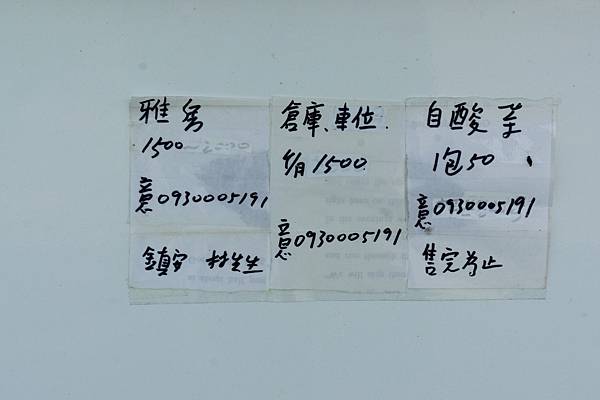 雅房
1500
意0930005191
鎮安 林先生
倉庫、車位.
月1500
意0930005191
自酸菜
1包50、
意0930005191
售完為止